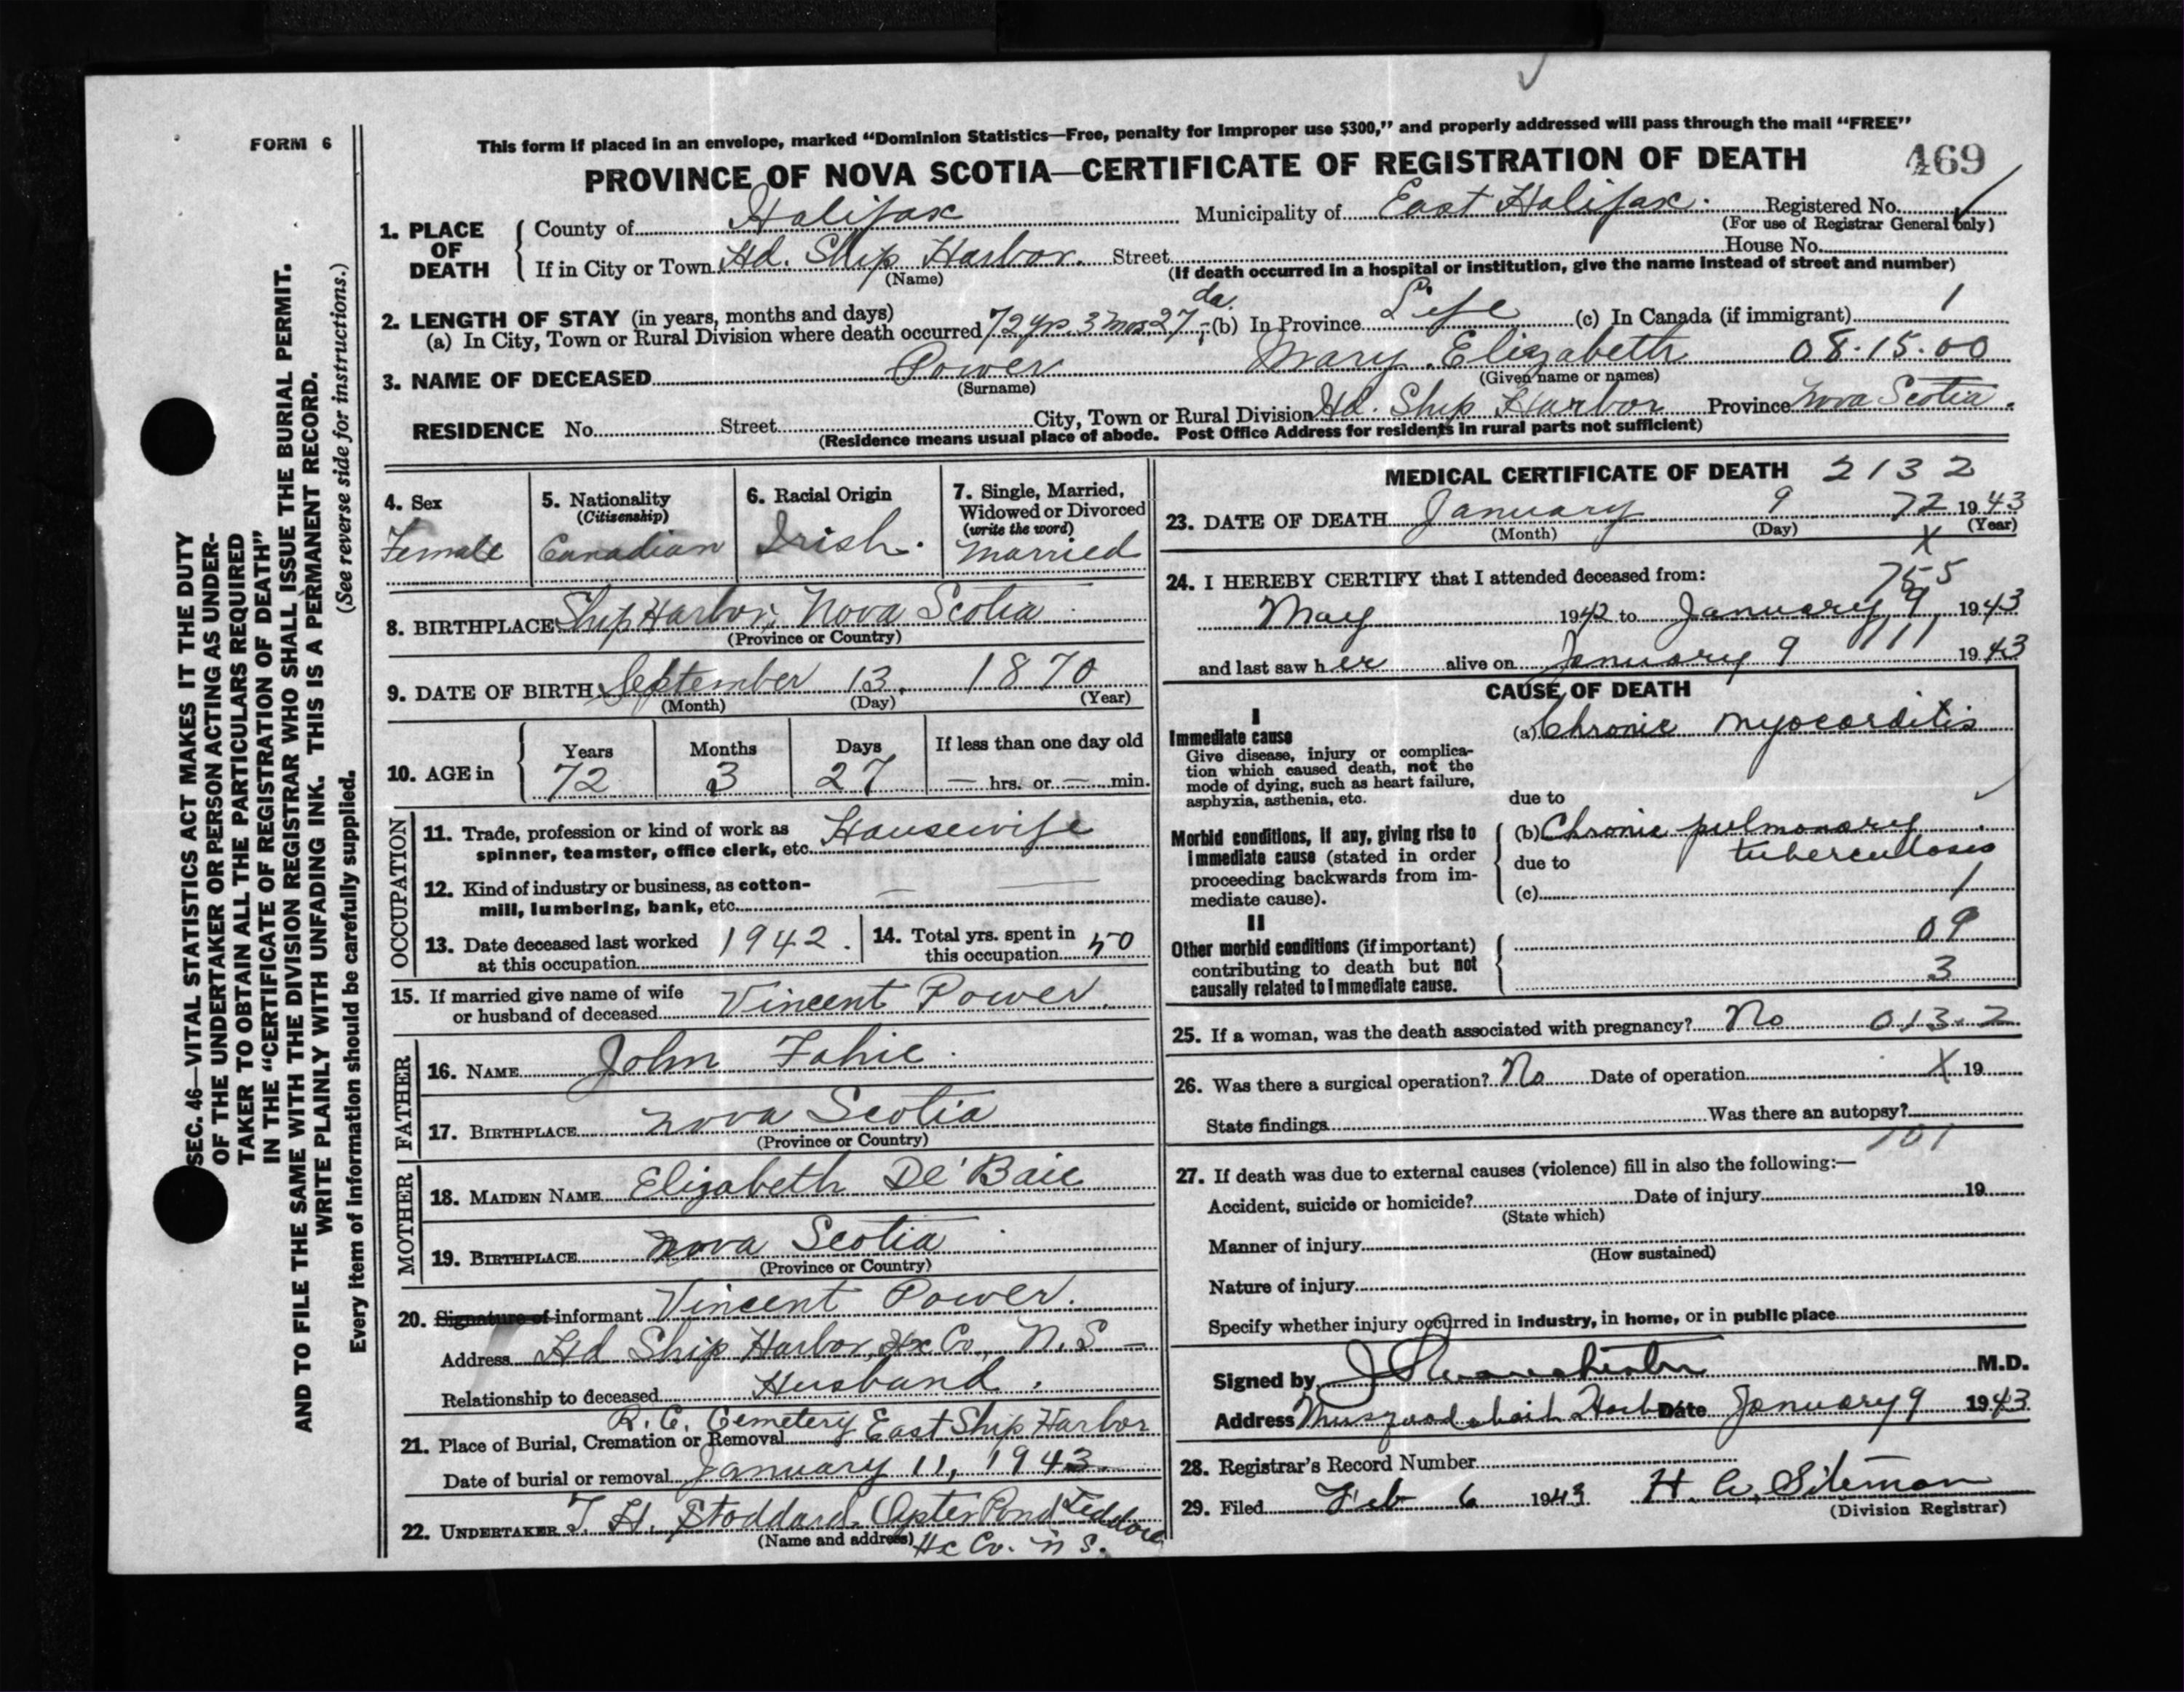 FORM 6
This form if placed in an envelope, marked “Dominion Statistics—Free, penalty for improper use $300,” and properly addressed will pass through the mail “FREE”
PROVINCE OF NOVA SCOTIA—CERTIFICATE OF REGISTRATION OF DEATH 469
1. PLACE OF DEATH { County of Halifax Municipality of East Halifax. Registered No.
(For use of Registrar General only)
If in City or Town Hd. Ship Harbor. Street House No.
(Name) (If death occurred in a hospital or institution, give the name instead of street and number)
2. LENGTH OF STAY (in years, months and days)
(a) In City, Town or Rural Division where death occurred 72 yrs. 3 mos 27 da. (b) In Province Life (c) In Canada (if immigrant) 1
3. NAME OF DECEASED Power Mary Elizabeth 08.15.00
(Surname) (Given name or names)
RESIDENCE No. Street City, Town or Rural Division Hd. Ship Harbor Province Nova Scotia.
(Residence means usual place of abode. Post Office Address for residents in rural parts not sufficient)
4. Sex
Female
5. Nationality
(Citizenship)
Canadian
6. Racial Origin
Irish.
7. Single, Married, Widowed or Divorced
(write the word)
Married
8. BIRTHPLACE Ship Harbor, Nova Scotia
(Province or Country)
9. DATE OF BIRTH September 13, 1870
(Month) (Day) (Year)
10. AGE in { Years Months Days If less than one day old
72 3 27 — hrs. or — min.
OCCUPATION
11. Trade, profession or kind of work as Housewife
spinner, teamster, office clerk, etc.
12. Kind of industry or business, as cotton-
mill, lumbering, bank, etc. — —
13. Date deceased last worked
at this occupation 1942.
14. Total yrs. spent in
this occupation 50
15. If married give name of wife
or husband of deceased Vincent Power.
FATHER
16. NAME John Fahie.
17. BIRTHPLACE Nova Scotia
(Province or Country)
MOTHER
18. MAIDEN NAME Elizabeth De'Baie
19. BIRTHPLACE Nova Scotia
(Province or Country)
20. Signature of informant Vincent Power.
Address Hd Ship Harbor, Hx Co., N.S. —
Relationship to deceased Husband.
R. C. Cemetery East Ship Harbor
21. Place of Burial, Cremation or Removal
Date of burial or removal January 11, 1943.
22. UNDERTAKER T. H. Stoddard, Oyster Pond Jeddore
(Name and address) Hx Co. N S.
MEDICAL CERTIFICATE OF DEATH 2132
23. DATE OF DEATH January 9 72 1943
(Month) (Day) X (Year)
24. I HEREBY CERTIFY that I attended deceased from: 755
May 1942 to January 9, 1943
111
and last saw her alive on January 9 1943
CAUSE OF DEATH
I
Immediate cause (a) Chronic myocarditis
Give disease, injury or complica-
tion which caused death, not the
mode of dying, such as heart failure,
asphyxia, asthenia, etc. due to
Morbid conditions, if any, giving rise to
immediate cause (stated in order
proceeding backwards from im-
mediate cause).
(b) Chronic pulmonary
due to tuberculosis
(c) 1
II
Other morbid conditions (if important)
contributing to death but not
causally related to immediate cause.
09
3
25. If a woman, was the death associated with pregnancy? No 013.2
26. Was there a surgical operation? No Date of operation X 19
State findings Was there an autopsy?
101
27. If death was due to external causes (violence) fill in also the following:—
Accident, suicide or homicide? Date of injury 19
(State which)
Manner of injury
(How sustained)
Nature of injury
Specify whether injury occurred in industry, in home, or in public place
Signed by M.D.
Address Musquodoboit Harbor Date January 9 1943
28. Registrar's Record Number
29. Filed Feb 6 1943 H. A. Siteman
(Division Registrar)
SEC. 46—VITAL STATISTICS ACT MAKES IT THE DUTY
OF THE UNDERTAKER OR PERSON ACTING AS UNDER-
TAKER TO OBTAIN ALL THE PARTICULARS REQUIRED
IN THE “CERTIFICATE OF REGISTRATION OF DEATH”
AND TO FILE THE SAME WITH THE DIVISION REGISTRAR WHO SHALL ISSUE THE BURIAL PERMIT.
WRITE PLAINLY WITH UNFADING INK. THIS IS A PERMANENT RECORD.
Every item of information should be carefully supplied. (See reverse side for instructions.)